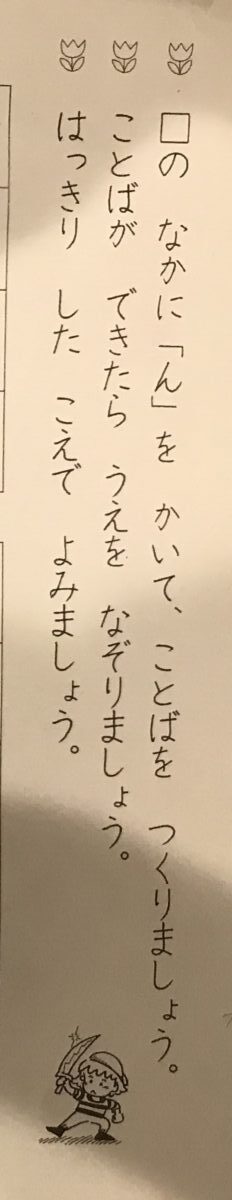 □の なかに「ん」を かいて、ことばを つくりましょう。
ことばが できたら うえを なぞりましょう。
はっきり した こえで よみましょう。